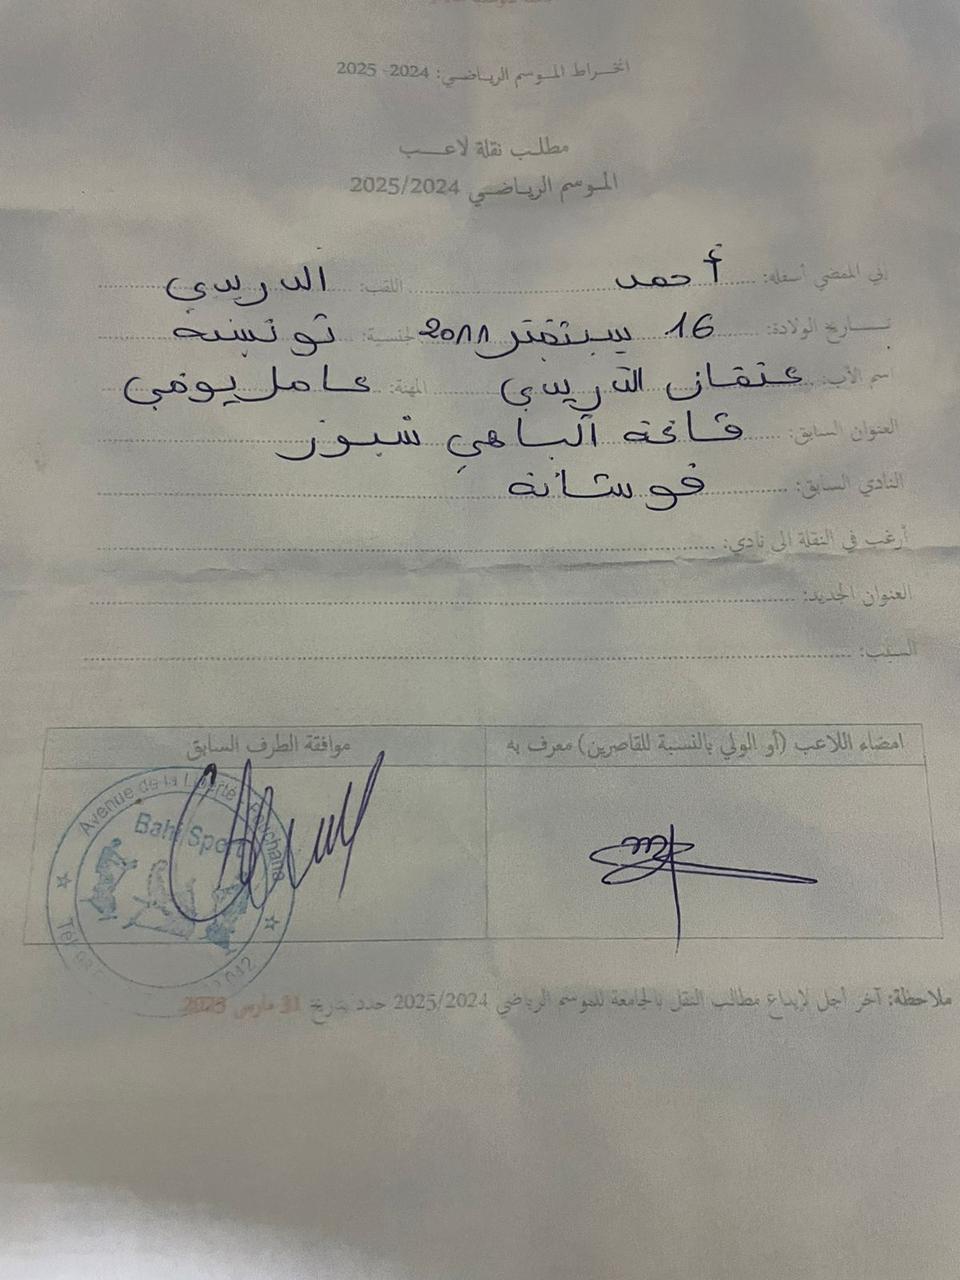 انخراط الموسم الرياضي: 2024- 2025
مطلب نقلة لاعب
الموسم الرياضي 2025/2024
إني الممضي أسفله: أحمد اللقب: الدريدي
تاريخ الولادة: 16 سبتمبر 2011 الجنسية: تونسية
اسم الأب: عثمان الدريدي المهنة: عامل يومي
العنوان السابق: قاعة الباهي سبور
النادي السابق: فوسانة
أرغب في النقلة الى نادي:
العنوان الجديد:
السبب:
امضاء اللاعب (أو الولي بالنسبة للقاصرين) معرف به
موافقة الطرف السابق
Avenue de la Liberté Fouchana
Bahi Sport
ملاحظة: آخر أجل لإيداع مطالب النقل بالجامعة للموسم الرياضي 2025/2024 حدد بتاريخ 31 مارس